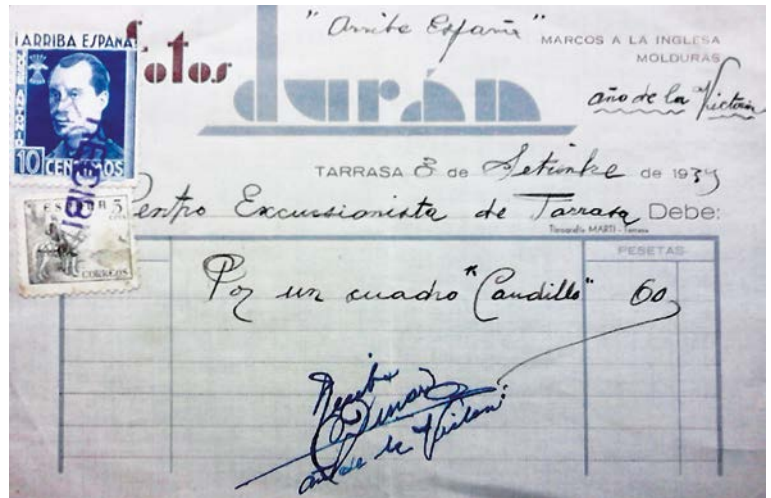 ¡ARRIBA ESPAÑA!
JOSE ANTONIO
10 CENTIMOS
RECIBI
ESPAÑA 5
CORREOS
"Arriba España"
fotos
durán
MARCOS A LA INGLESA
MOLDURAS
año de la Victoria
TARRASA 8 de Setiembre de 1939
Centro Excursionista de Tarrasa Debe:
Tipografía MARTÍ - Tarrasa
PESETAS
Por un cuadro "Caudillo" 60
Recibí
Durán
año de la Victoria